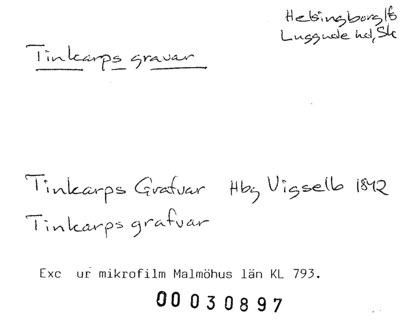 Helsingborg lfs
Luggude hd, Sk
Tinkarps gravar
Tinkarps Grafvar Hbg Vigselb 1842
Tinkarps grafvar
Exc ur mikrofilm Malmöhus län KL 793.
00030897